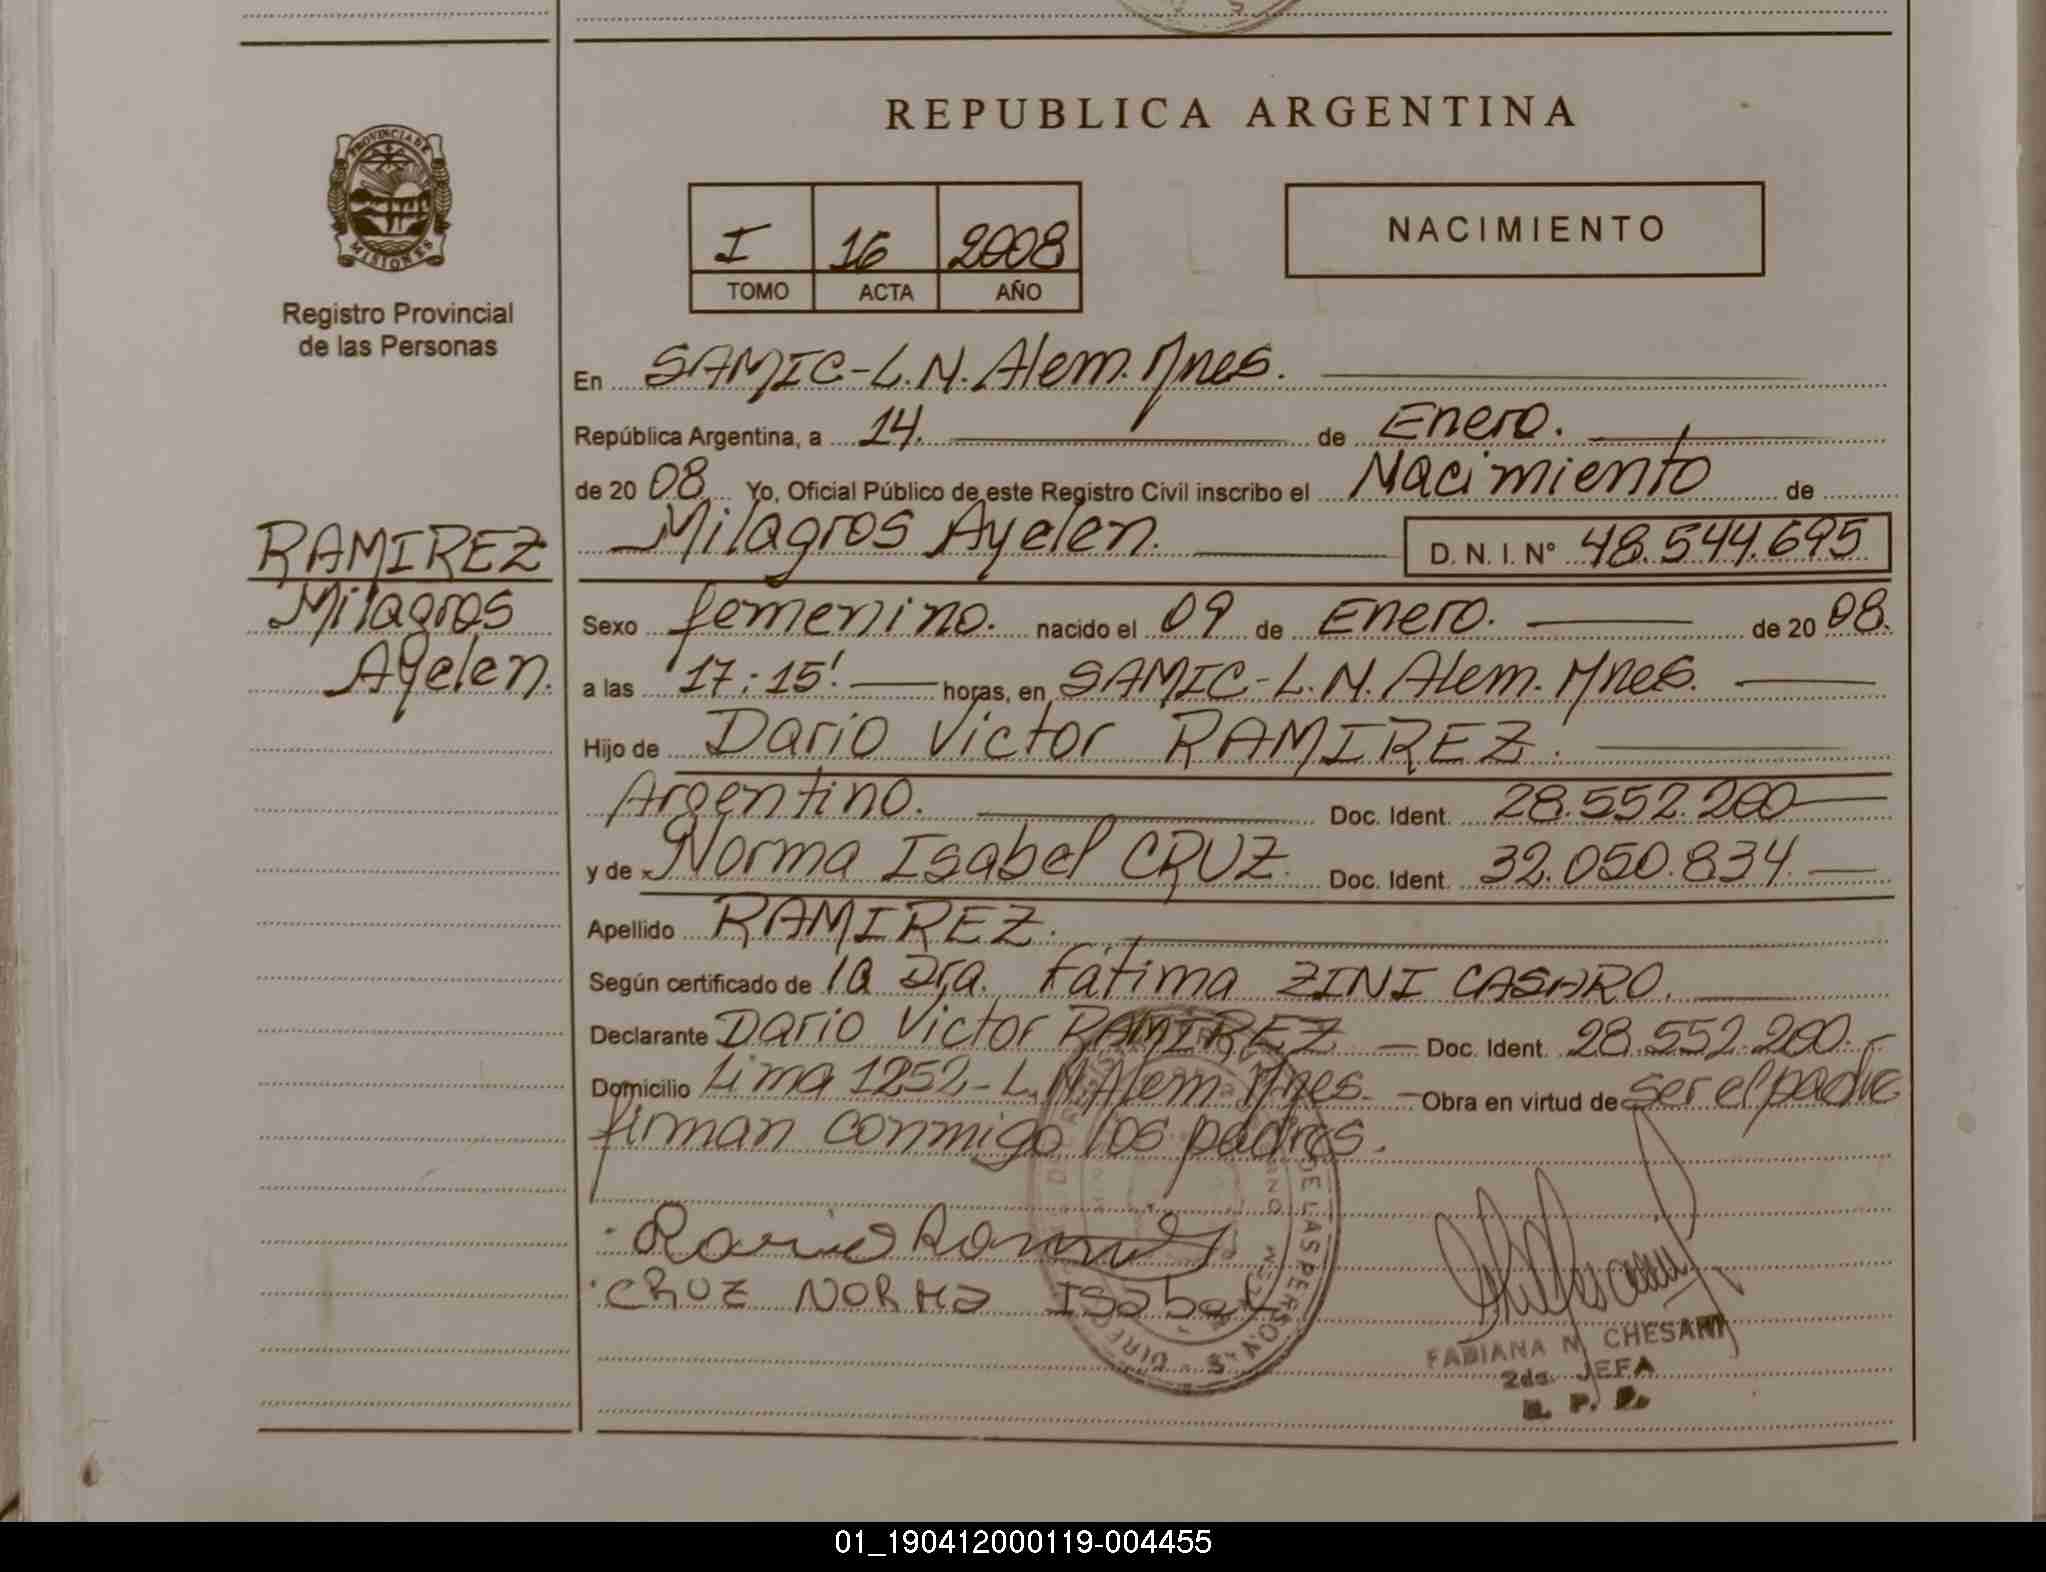 REPUBLICA ARGENTINA
PROVINCIA DE
MISIONES
Registro Provincial
de las Personas
I 16 2008
TOMO ACTA AÑO
NACIMIENTO
En SAMIC-L.N. Alem. Mnes.
República Argentina, a 14. de Enero.
de 20 08 Yo, Oficial Público de este Registro Civil inscribo el Nacimiento de
Milagros Ayelen. D. N. I. N° 48.544.695
RAMIREZ
Milagros
Ayelen.
Sexo femenino. nacido el 09 de Enero. de 20 08.
a las 17:15' horas, en SAMIC-L.N. Alem. Mnes.
Hijo de Dario Victor RAMIREZ.
Argentino. Doc. Ident. 28.552.200
y de Norma Isabel CRUZ. Doc. Ident. 32.050.834.
Apellido RAMIREZ.
Según certificado de la Dra. Fátima ZINI CASARO.
Declarante Dario Victor RAMIREZ Doc. Ident. 28.552.200.
Domicilio Lima 1252-L.N. Alem. Mnes. Obra en virtud de ser el padre
firman conmigo los padres.
CRUZ NORMA Isabel
DE LAS PERSONAS
FABIANA N. CHESANI
2da. JEFA
R. P. P.
01_190412000119-004455